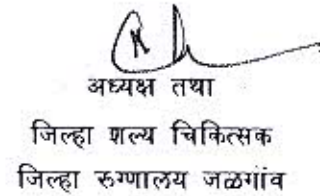 अध्यक्ष तथा
जिल्हा शल्य चिकित्सक
जिल्हा रुग्णालय जळगांव